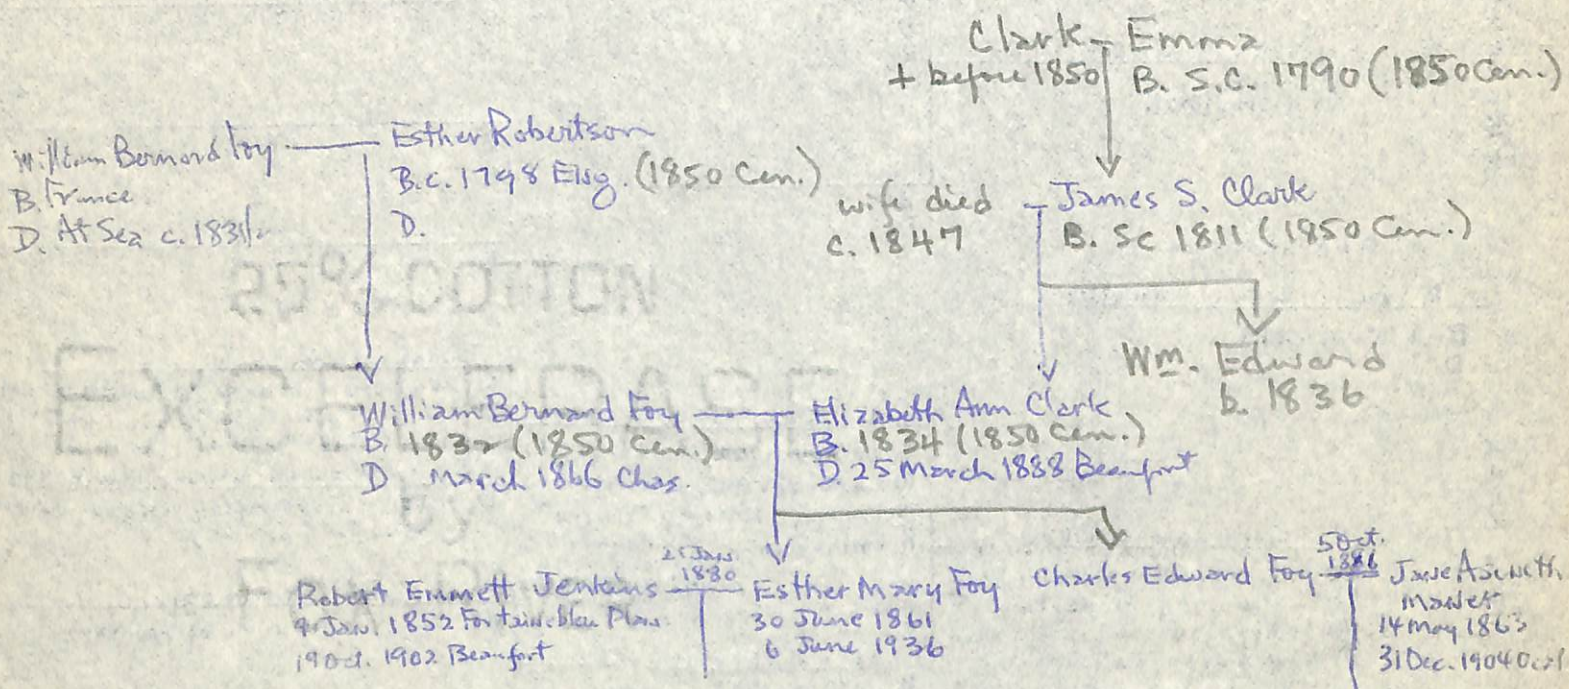 Clark — Emma
+ before 1850 B. S.C. 1790 (1850 Cen.)
William Bernard Foy — Esther Robertson
B. France
D. At Sea c.
B.c. 1798 Eng. (1850 Cen.)
D.
wife died — James S. Clark
c. 1847
B. Sc 1811 (1850 Cen.)
25% COTTON
Wm. Edward
b. 1836
William Bernard Foy — Elizabeth Ann Clark
B. 1832 (1850 Cen.)
D. March 1866 Chas.
B. 1834 (1850 Cen.)
D. 25 March 1888 Beaufort
Robert Emmett Jenkins
Jan. 1852 Fontainebleau Plan.
19 Oct. 1902 Beaufort
Jan.
1880
Esther Mary Foy
30 June 1861
6 June 1936
Charles Edward Foy
5 Oct.
1886
Jane Aseneth
14 May 1863
31 Dec. 1904